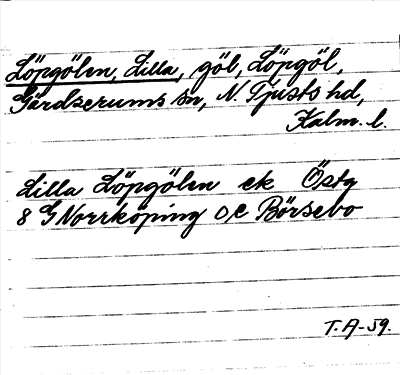 Löpgölen, Lilla, göl, Löpgöl,
Gärdserums sn, N. Tjusts hd,
Kalm. l.
Lilla Löpgölen ek Östg
8 G Norrköping OC Börsebo
T.A-59.